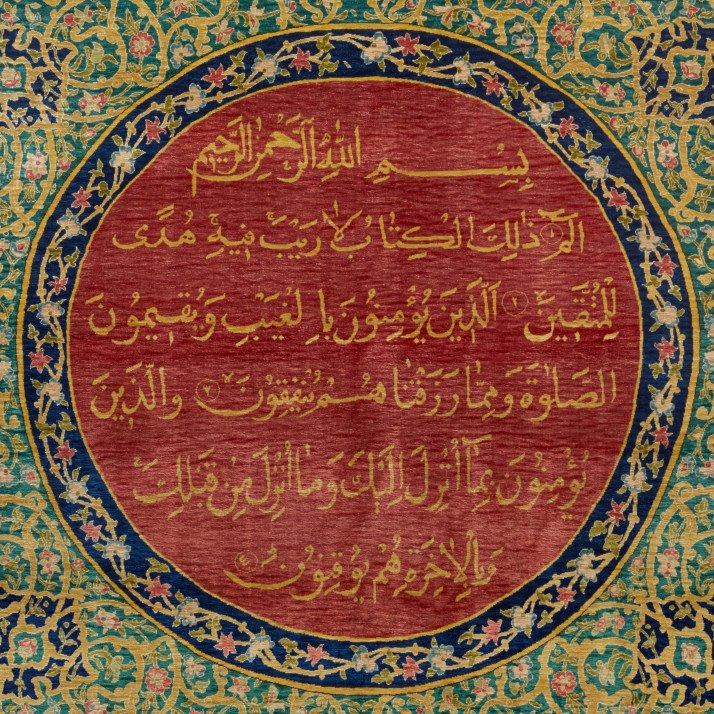 بِسْمِ اللهِ الرَّحْمٰنِ الرَّحِيْمِ
الٓمّٓ ۝١ ذٰلِكَ الْكِتٰبُ لَا رَيْبَ فِيْهِ هُدًى
لِّلْمُتَّقِيْنَ ۝٢ الَّذِيْنَ يُؤْمِنُوْنَ بِالْغَيْبِ وَيُقِيْمُوْنَ
الصَّلٰوةَ وَمِمَّا رَزَقْنٰاهُمْ يُنْفِقُوْنَ ۝٣ وَالَّذِيْنَ
يُؤْمِنُوْنَ بِمَآ أُنْزِلَ إِلَيْكَ وَمَا أُنْزِلَ مِنْ قَبْلِكَ
وَبِالْاٰخِرَةِ هُمْ يُوْقِنُوْنَ ۝٤